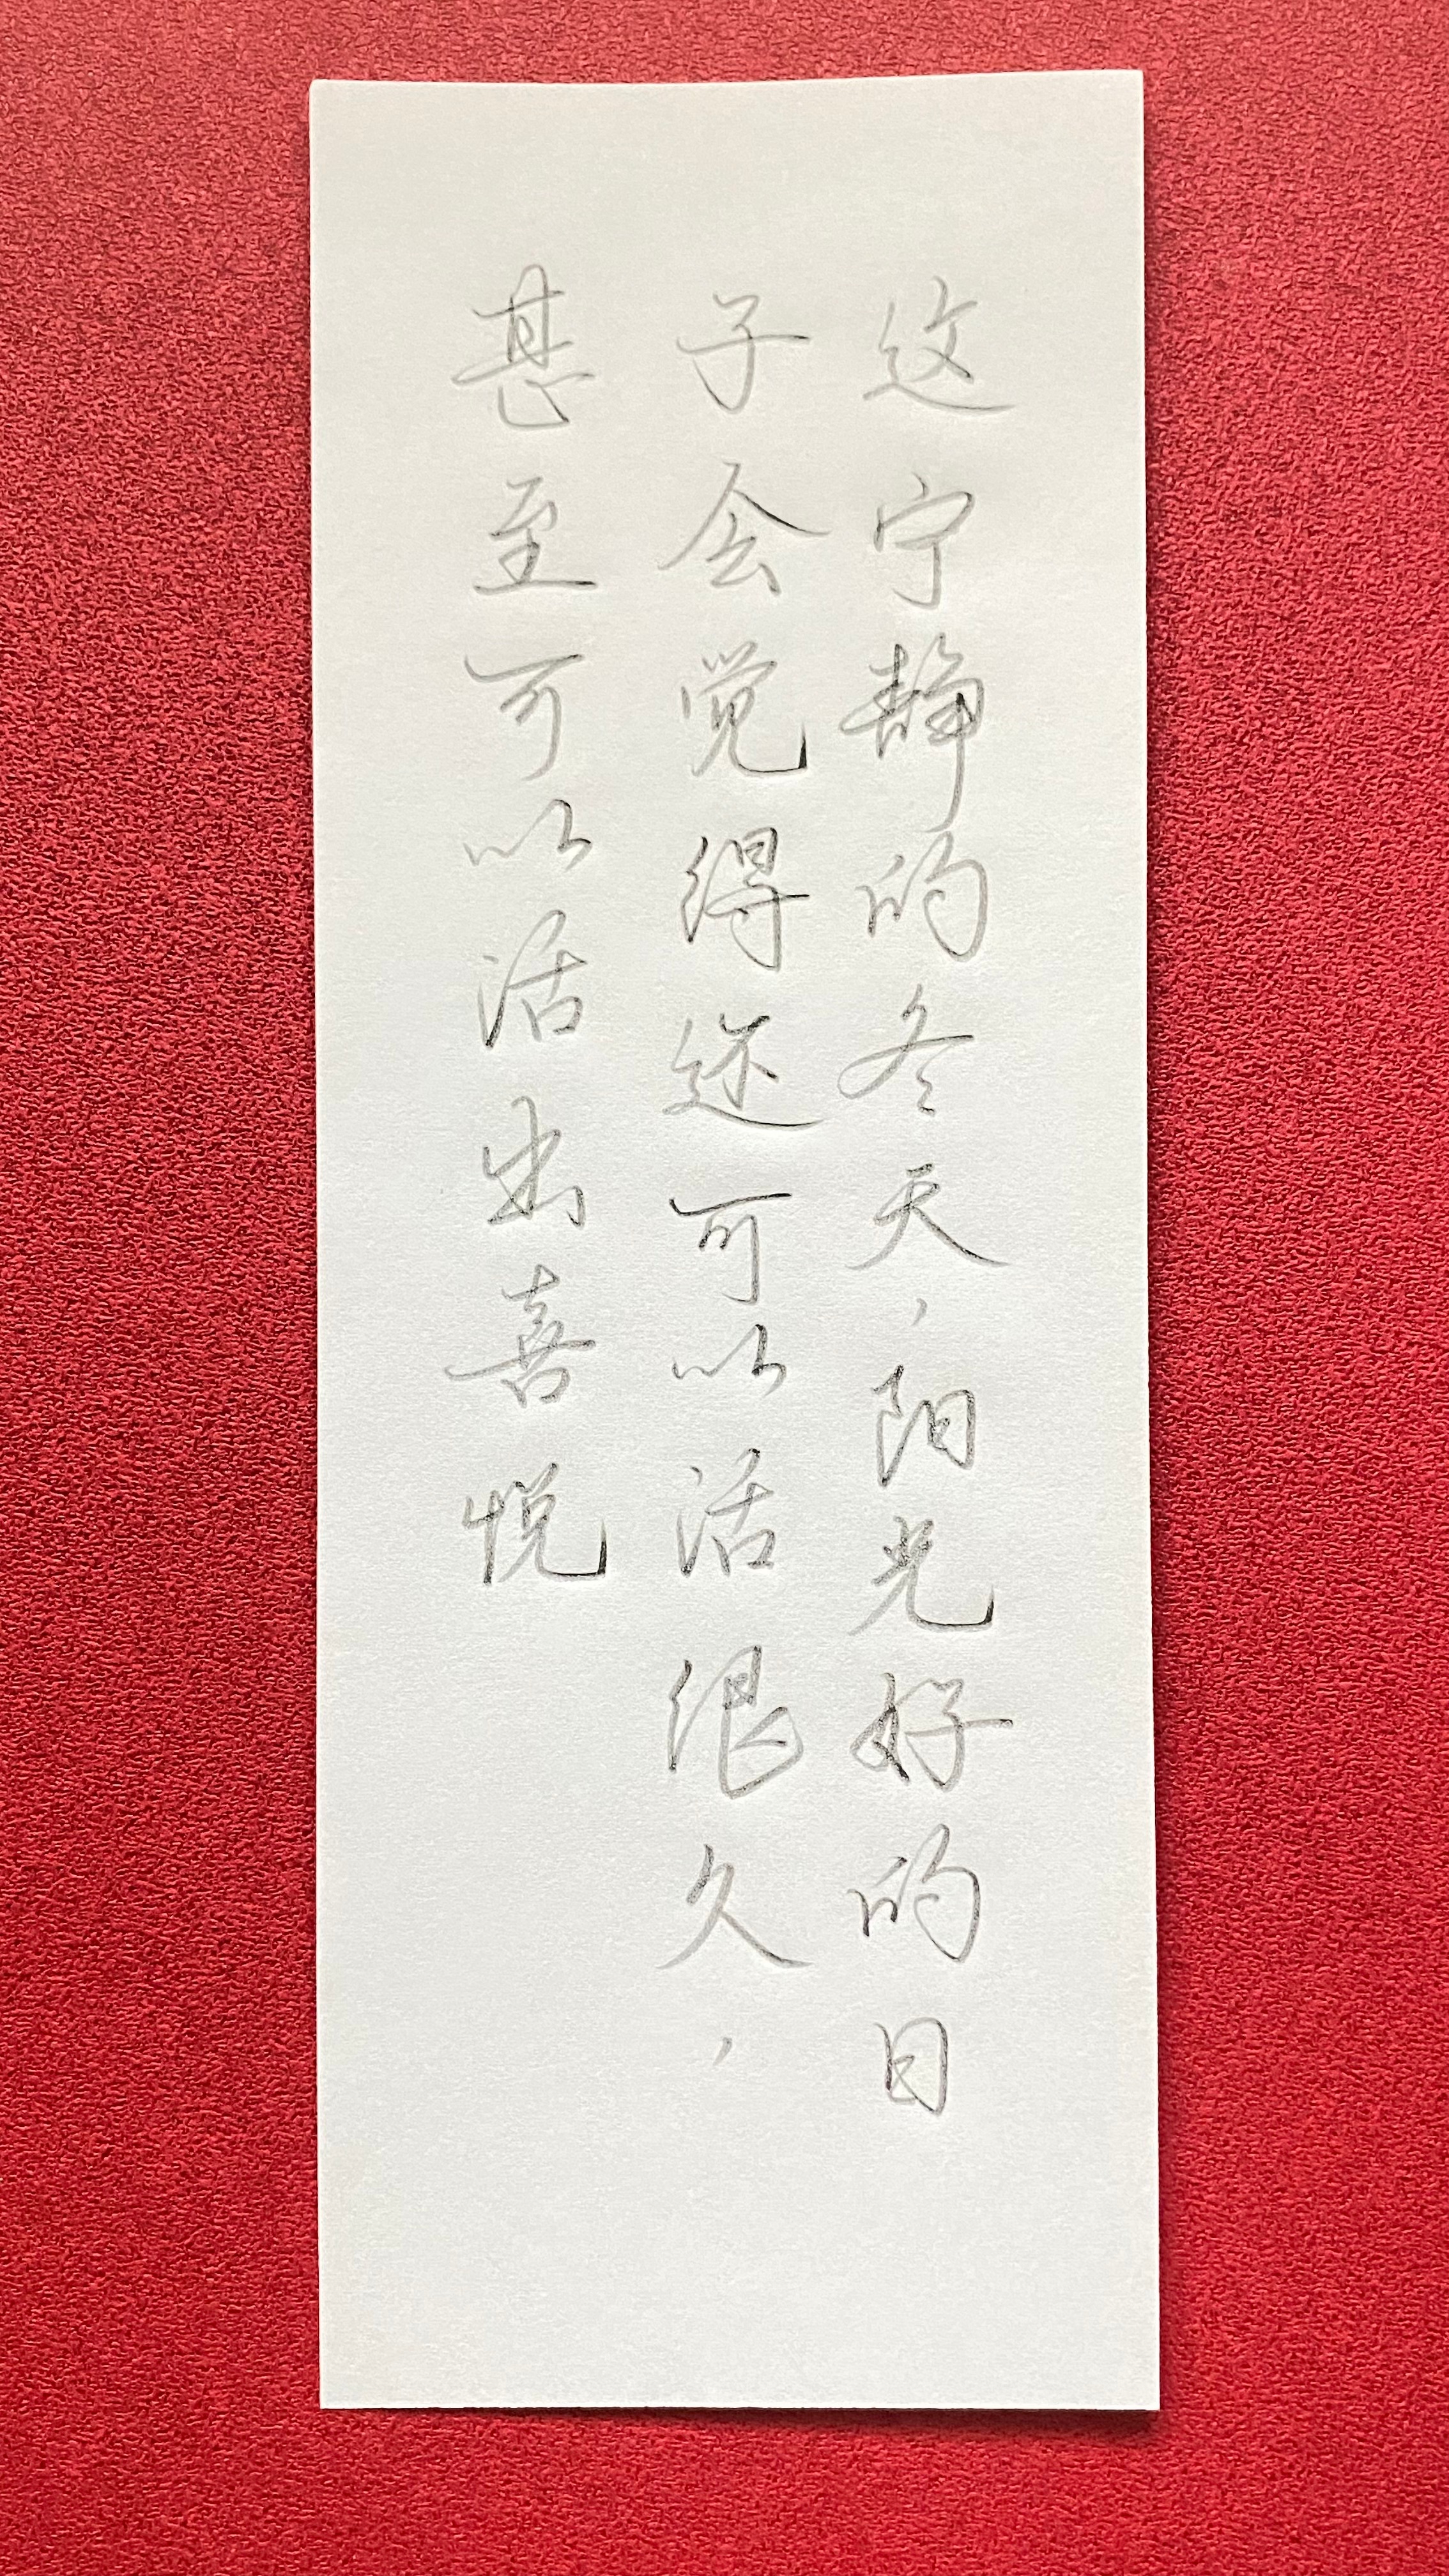 这宁静的冬天，阳光好的日
子会觉得还可以活很久，
甚至可以活出喜悦